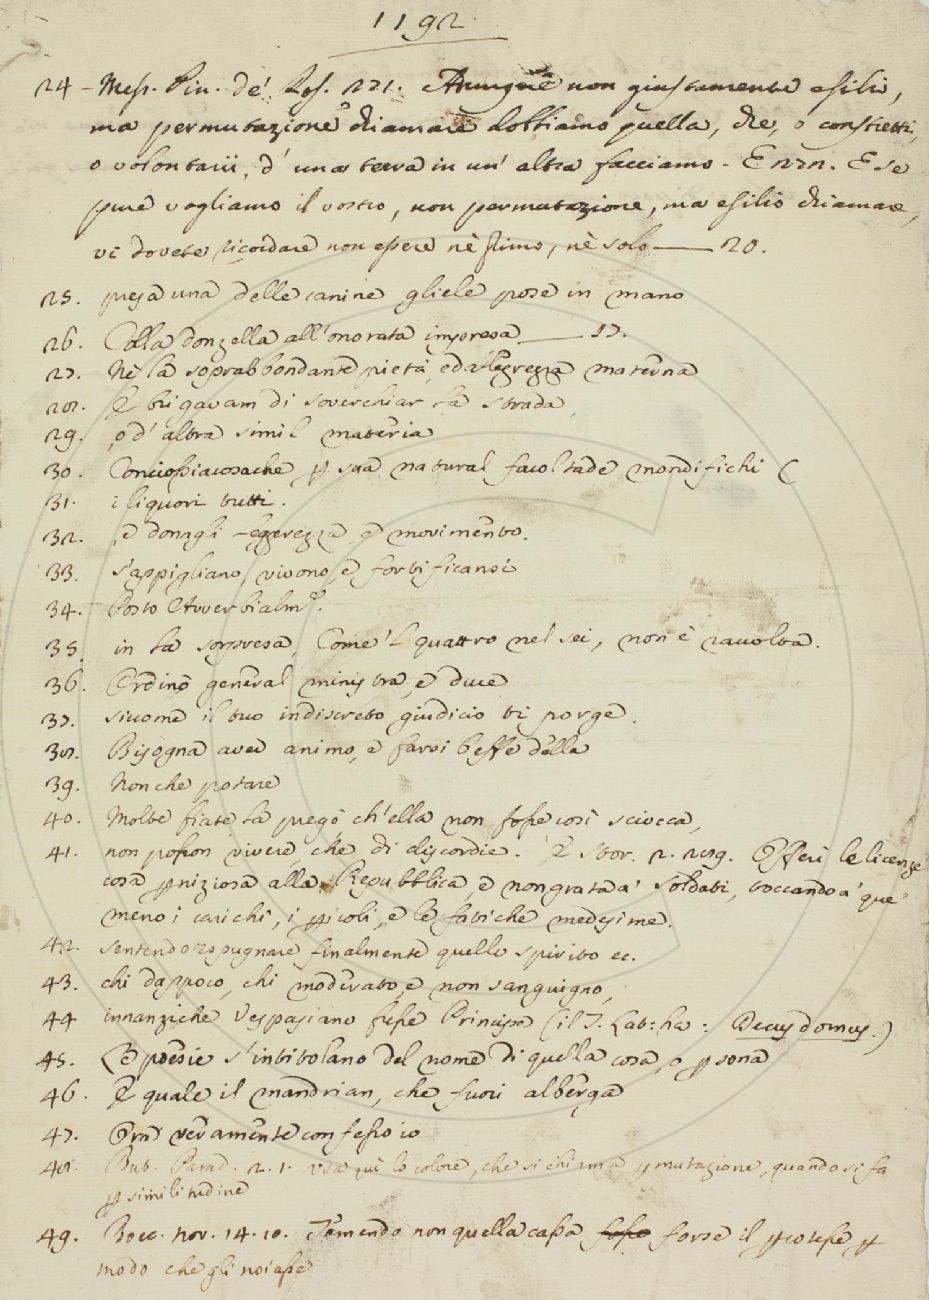 1192
24 - Mess. Pin. de' Ros. 221. Adunque non giustamente esilio,
ma permutazione chiamare dobbiamo quella, che, o constretti,
o volontarii, d' una terra in un' altra facciamo. E nrn. E se
pure vogliamo il vostro, non permutazione, ma esilio chiamare,
vi dovete ricordare non essere nè primo, nè solo —— 20.
25. presa una delle canine gliele pose in mano
26. Colla donzella all'onorata impresa —— 17.
27. Nè la soprabbondante pietà, ed allegrezza materna
28. E brigavam di soverchiar la strada,
29. o d' altra simil materia
30. Conciossiacosache ꝑ sua natural facoltade mondifichi (
31. i liquori tutti.
32. e donagli legerezza, e movimento.
33. s'appigliano, vivono, e fortificansi
34. Posto Avverbialmᵉ.
35. in la sorpresa, Come 'l quattro nel sei, non è racolta.
36. Ordinò general ministra, e duce
37. siccome il tuo indiscreto giudicio ti porge.
38. Bisogna aver animo, e farsi beffe della
39. Non che potare
40. Molte fiate la pregò ch'ella non fosse così sciocca,
41. non posson vivere, che di discordie. E Stor. 2. 289. Offerì le licenze
cosa ꝑniziosa alla Repubblica, e non grata a' soldati, toccando a' que'
meno i carichi, i ꝑicoli, e le fatiche medesime.
42. sentendo repugnare finalmente quello spirito ec.
43. chi dappoco, chi moderato, e non sanguigno,
44 innanziche Vespasiano fusse Principe (il T. Lat: ha: Decus domus.)
45. Le poesie s'intitolano del nome di quella cosa, o ꝑsona
46. E quale il mandrian, che fuori alberga
47. Om' veramente confesso io
48. But. Parad. 2. 1. usa quì lo colore, che si chiama ꝑmutazione, quando si fa
ꝑ similitudine
49. Bocc. nov. 14. 10. Temendo non quella cassa fosse forse il ꝑcotesse ꝑ
modo che gli noiasse